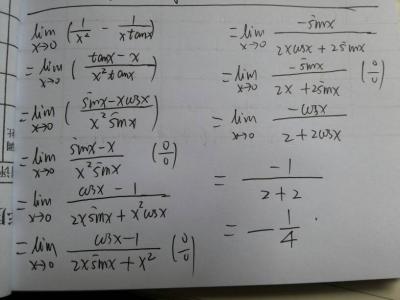 lim x→0 (1/x² - 1/(x tanx))
= lim x→0 ((tanx - x)/(x² tanx))
= lim x→0 ((sinx - xcosx)/(x² sinx))
= lim x→0 (sinx - x)/(x² sinx) (0/0)
= lim x→0 (cosx - 1)/(2x sinx + x² cosx)
= lim x→0 (cosx - 1)/(2x sinx + x²) (0/0)
= lim x→0 (-sinx)/(2xcosx + 2sinx)
= lim x→0 (-sinx)/(2x + 2sinx) (0/0)
= lim x→0 (-cosx)/(2 + 2cosx)
= (-1)/(2+2)
= -1/4.